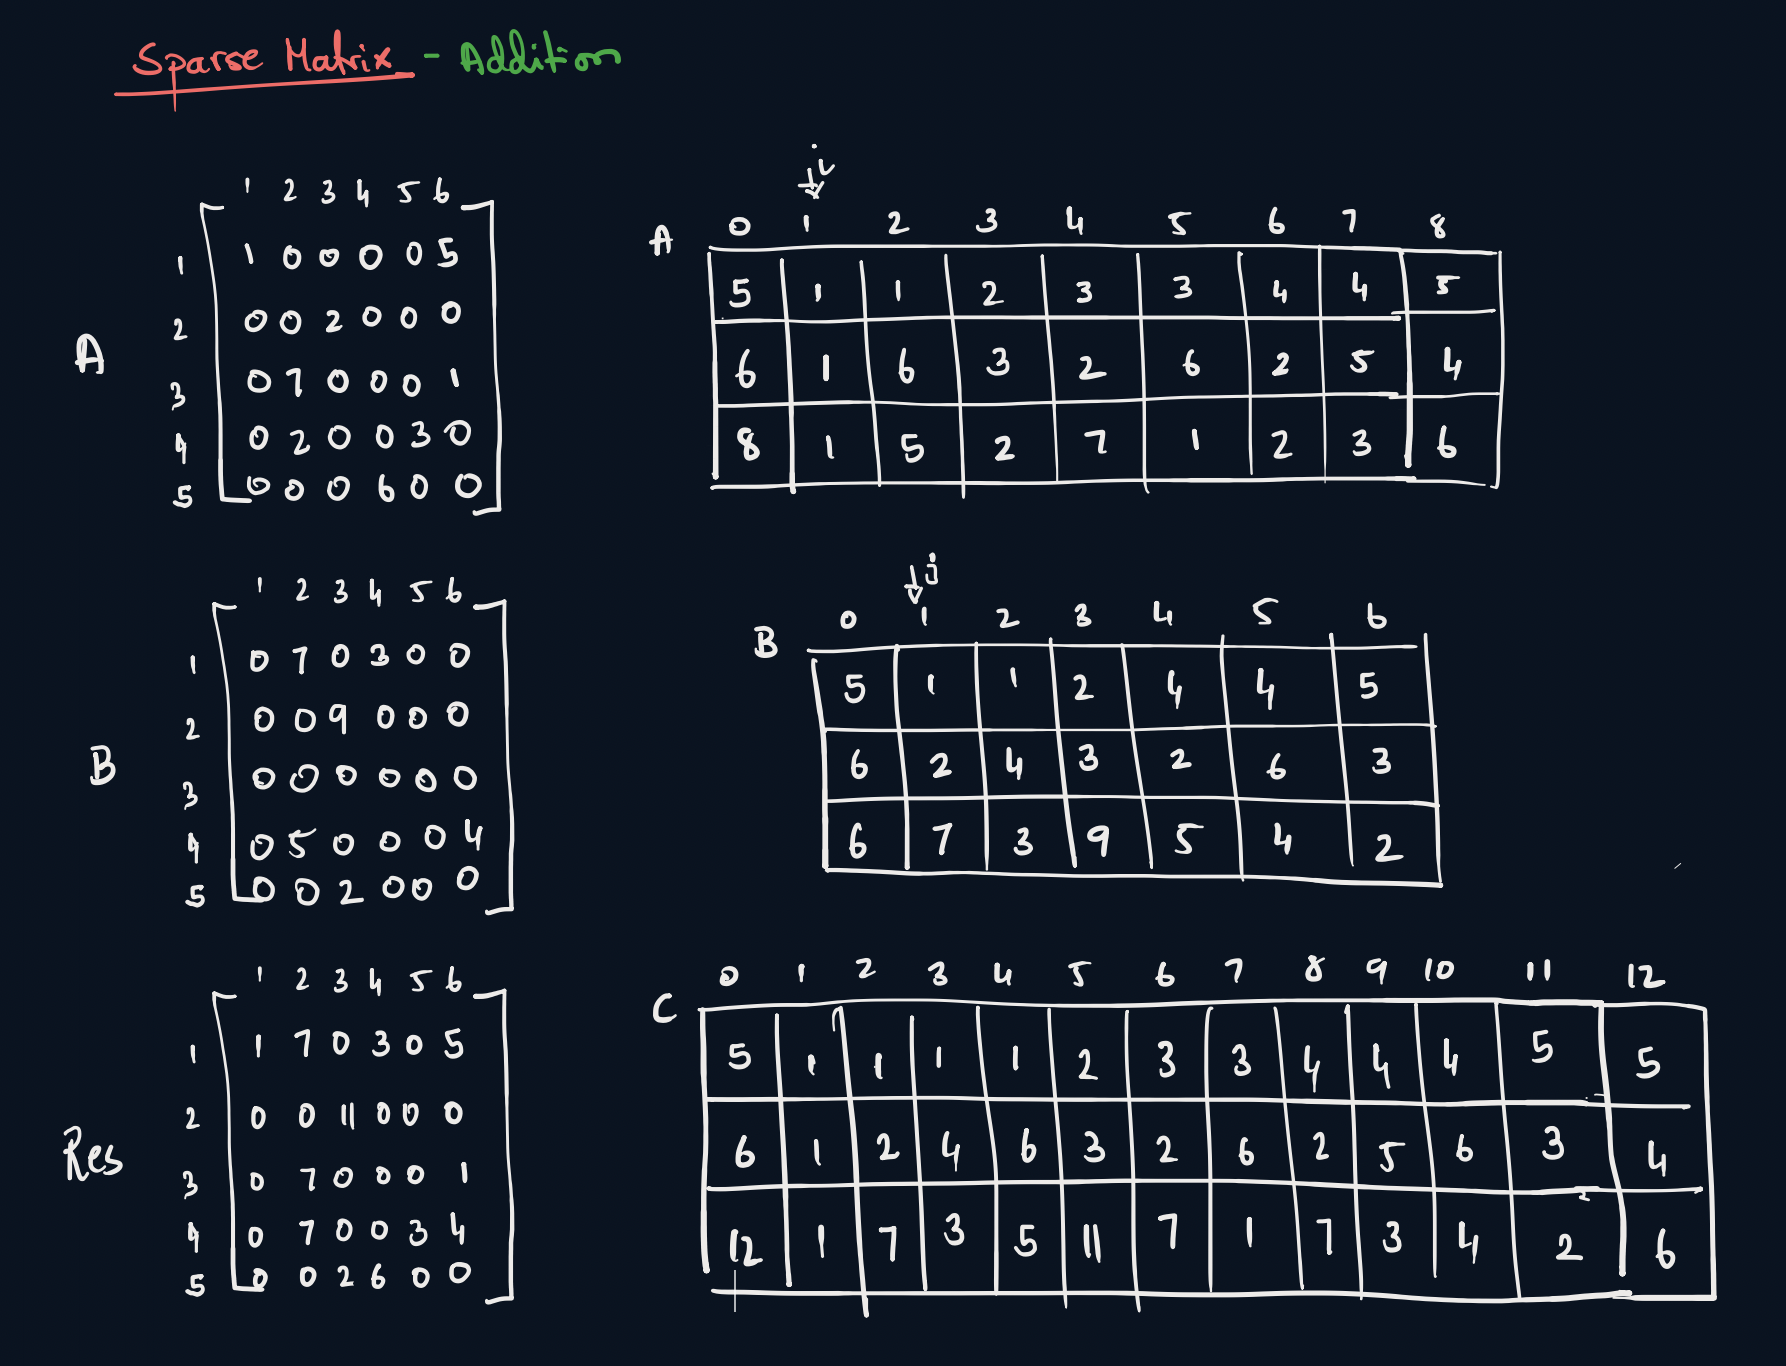 Sparse Matrix - Addition
1 2 3 4 5 6
1 1 0 0 0 0 5
2 0 0 2 0 0 0
A
3 0 7 0 0 0 1
4 0 2 0 0 3 0
5 0 0 0 6 0 0
i
0 1 2 3 4 5 6 7 8
A
5 1 1 2 3 3 4 4 5
6 1 6 3 2 6 2 5 4
8 1 5 2 7 1 2 3 6
1 2 3 4 5 6
1 0 7 0 3 0 0
2 0 0 9 0 0 0
B
3 0 0 0 0 0 0
4 0 5 0 0 0 4
5 0 0 2 0 0 0
j
0 1 2 3 4 5 6
B
5 1 1 2 4 4 5
6 2 4 3 2 6 3
6 7 3 9 5 4 2
1 2 3 4 5 6
1 1 7 0 3 0 5
2 0 0 11 0 0 0
Res
3 0 7 0 0 0 1
4 0 7 0 0 3 4
5 0 0 2 6 0 0
0 1 2 3 4 5 6 7 8 9 10 11 12
C
5 1 1 1 1 2 3 3 4 4 4 5 5
6 1 2 4 6 3 2 6 2 5 6 3 4
12 1 7 3 5 11 7 1 7 3 4 2 6